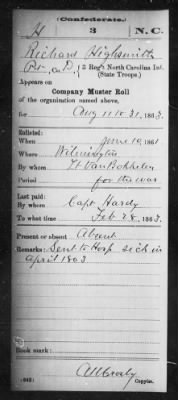 (Confederate.)
H 3 N.C.
Richard Highsmith
Pvt, Co. D, 3 Reg't North Carolina Inf.
(State Troops.)
Appears on
Company Muster Roll
of the organization named above,
for Aug 11 to 31, 1863.
Enlisted:
When June 10, 1861
Where Wilmington
By whom Lt VanBokkelen
Period for the war
Last paid:
By whom Capt Hardy
To what time Feb 28, 1863.
Present or absent Absent
Remarks: Sent to Hosp sick in
April 1863
Book mark:
(642) Copyist.